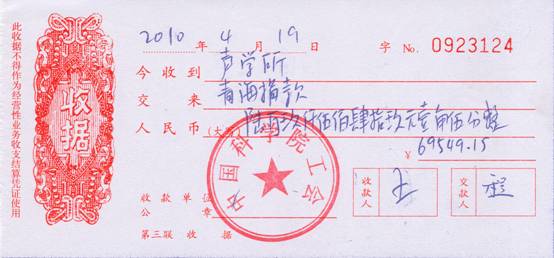 2010 年 4 月 19 日 字 No. 0923124
今收到 声学所
交来 青海捐款
人民币(大写) 陆万玖仟伍佰肆拾玖元壹角伍分整
¥ 69549.15
收款单位
公章
收款人
交款人
第三联 收据
收据
此收据不得作为经营性业务收支结算凭证使用
中国科学院工会